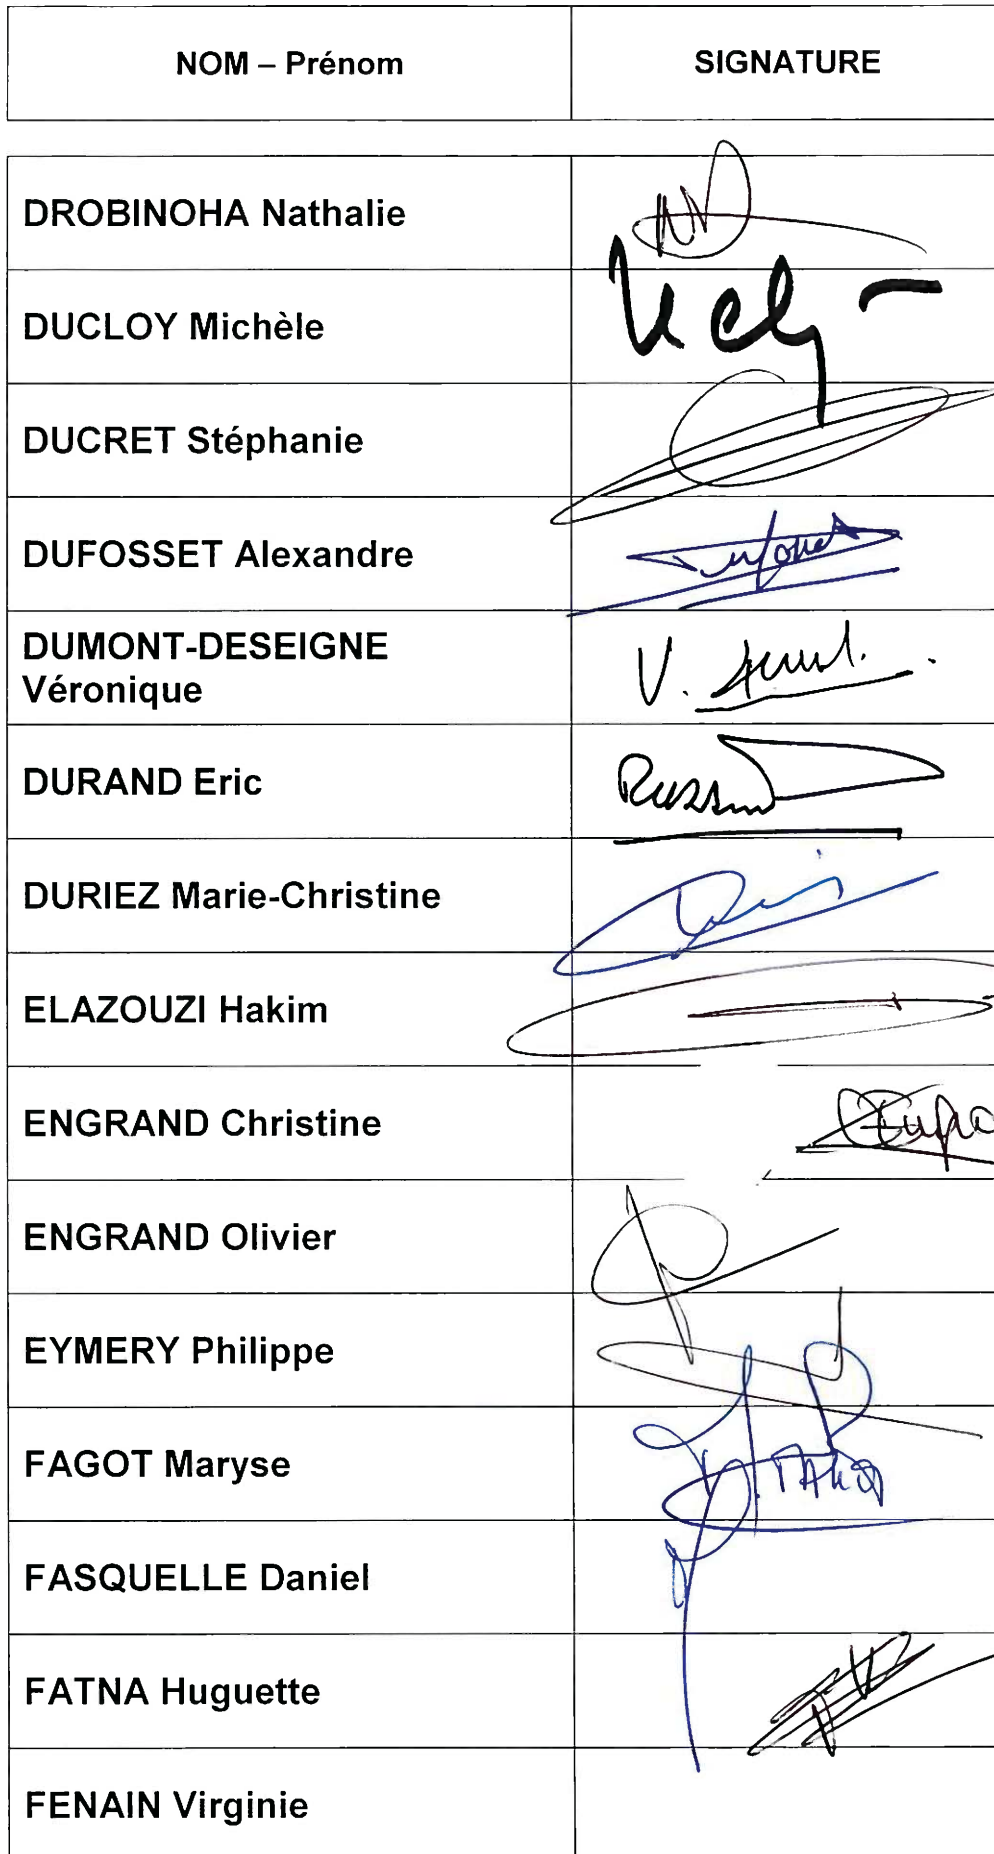 NOM – Prénom SIGNATURE
DROBINOHA Nathalie
DUCLOY Michèle
DUCRET Stéphanie
DUFOSSET Alexandre
DUMONT-DESEIGNE
Véronique
DURAND Eric
DURIEZ Marie-Christine
ELAZOUZI Hakim
ENGRAND Christine
ENGRAND Olivier
EYMERY Philippe
FAGOT Maryse
FASQUELLE Daniel
FATNA Huguette
FENAIN Virginie